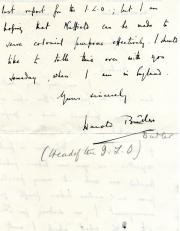 last report for the I.L.O, but I am
hoping that Nuffield can be made to
serve colonial purposes effectively. I should
like to talk this over with you
someday when I am in England.
Yours sincerely
Harold Butler
Butler
(Head of the I.L.O)